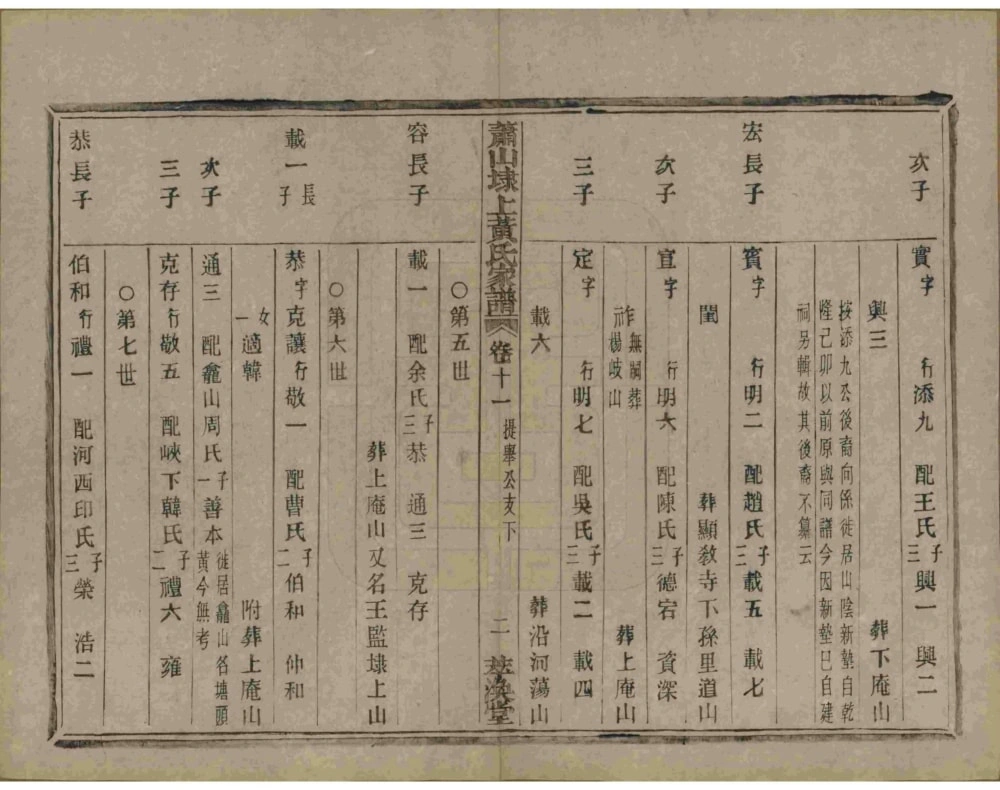 次子 實字 行添九 配王氏子三 興一 興二
興三 葬下庵山
按添九公後裔向係徙居山陰新墊自乾
隆己卯以前原與同譜今因新墊巳自建
祠另輯故其後裔不纂云
宏長子 賓字 行明二 配趙氏子三 載五 載七
閏 葬顯教寺下孫里道山
次子 宜字 行明六 配陳氏子三 德宕 資深
祚無嗣葬楊岐山 葬上庵山
三子 定字 行明七 配吳氏子三 載二 載四
載六 葬沿河蕩山
蕭山埭上黃氏家譜 卷十一 提舉公支下 二
〇第五世
容長子 載一 配余氏子三 恭 通三 克存
葬上庵山又名王監埭上山
〇第六世
載一長子 恭字克讓行敬一 配曹氏子二 伯和 仲和
女一適韓 附葬上庵山
次子 通三 配龕山周氏子一 善本 徙居龕山名塘頭黃今無考
三子 克存行敬五 配峽下韓氏子二 禮六 雍
〇第七世
恭長子 伯和行禮一 配河西印氏子三 榮 浩二